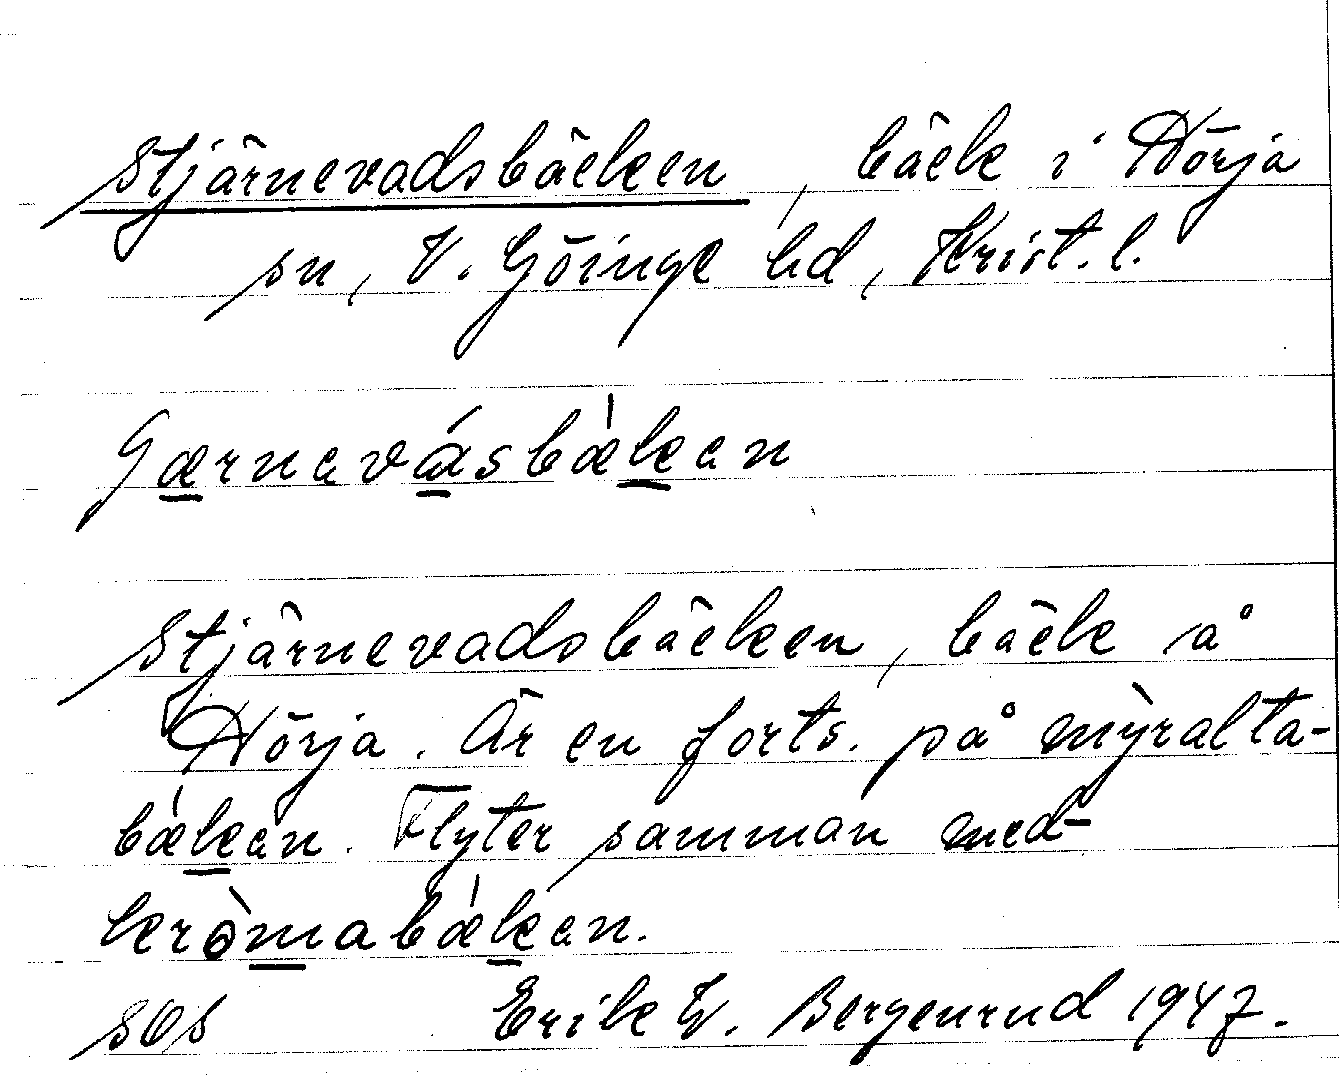 Stjärnevadsbäcken, bäck i Hörja
sn, V. Göinge hd, Krist. l.
Gæ̲rnavá̲sbæ̍k̲an
Stjärnevadsbäcken, bäck i å
Hörja. Är en forts. på mỳralta-
bæ̍k̲an. Flyter samman med
kròm̲abæ̍k̲an.
SOS Erik W. Bergenrud 1947.